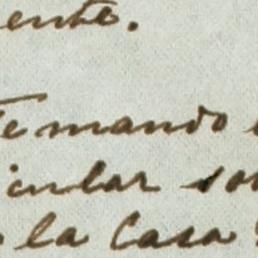 ente.
Te mando
icular so
la Casa